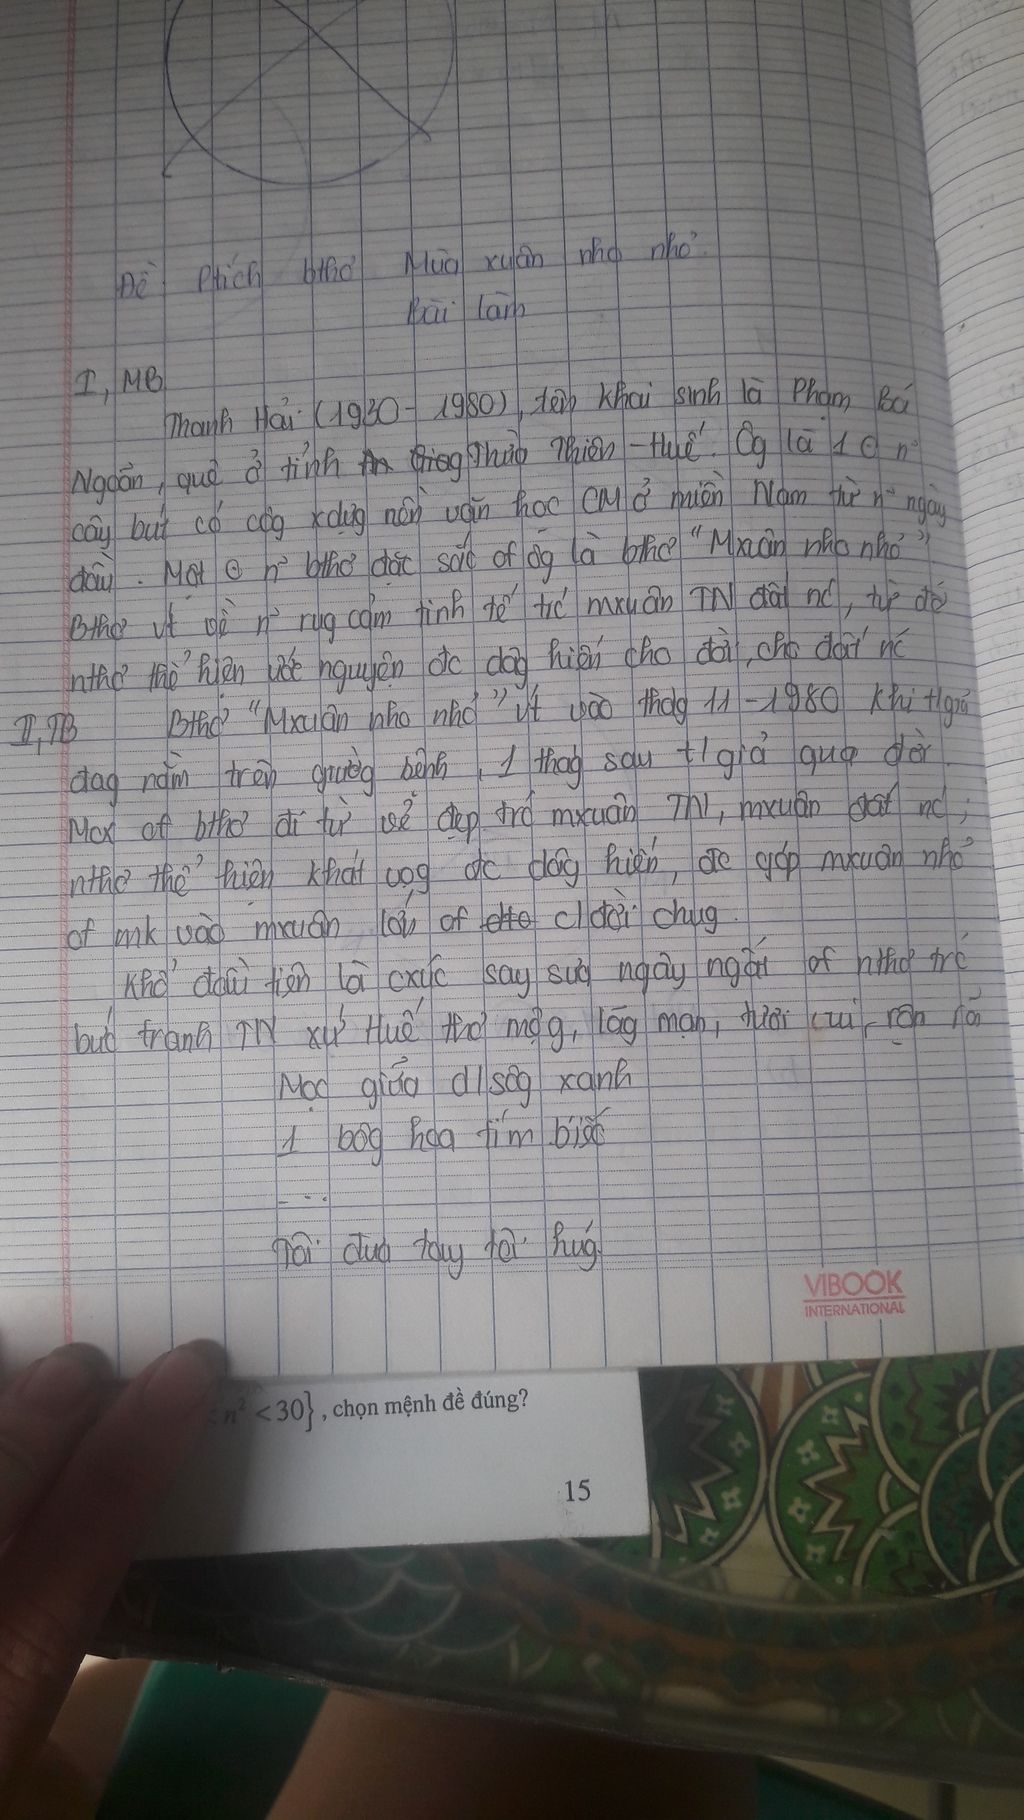 Đề Ptích bthơ Mùa xuân nho nhỏ.
Bài làm
I, MB
Thanh Hải (1930 - 1980), tên khai sinh là Phạm Bá
Ngoãn, quê ở tỉnh Thừa Thiên - Huế. Ôg là 1 n~
cây bút có côg xdựg nền văn học CM ở miền Nam từ n~ ngày
đầu. Một n~ bthơ đặc sắc of ôg là bthơ "Mxuân nho nhỏ"
Bthơ vt về n~ rug cảm tinh tế trc mxuân TN đất nc, từ đó
nthơ thể hiện ước nguyện đc dâg hiến cho đời, cho đất nc
II, TB Bthơ "Mxuân nho nhỏ" vt vào thág 11 - 1980 khi t/giả
đag nằm trên giườg bệnh, 1 thág sau t/giả qua đời.
Mcx of bthơ đi từ vẻ đẹp trc mxuân TN, mxuân đất nc;
nthơ thể hiện khát vọg đc dâg hiến, đc góp mxuân nhỏ
of mk vào mxuân lớn of c/đời chug.
Khổ đầu tiên là cxúc say sưa ngây ngất of nthơ trc
bức tranh TN xứ Huế thơ mộg, lãg mạn, tươi vui, rộn rã
Mọc giữa d/sôg xanh
1 bôg hoa tím biếc
...
Tôi đưa tay tôi hứg
VIBOOK
INTERNATIONAL
n² < 30}, chọn mệnh đề đúng?
15